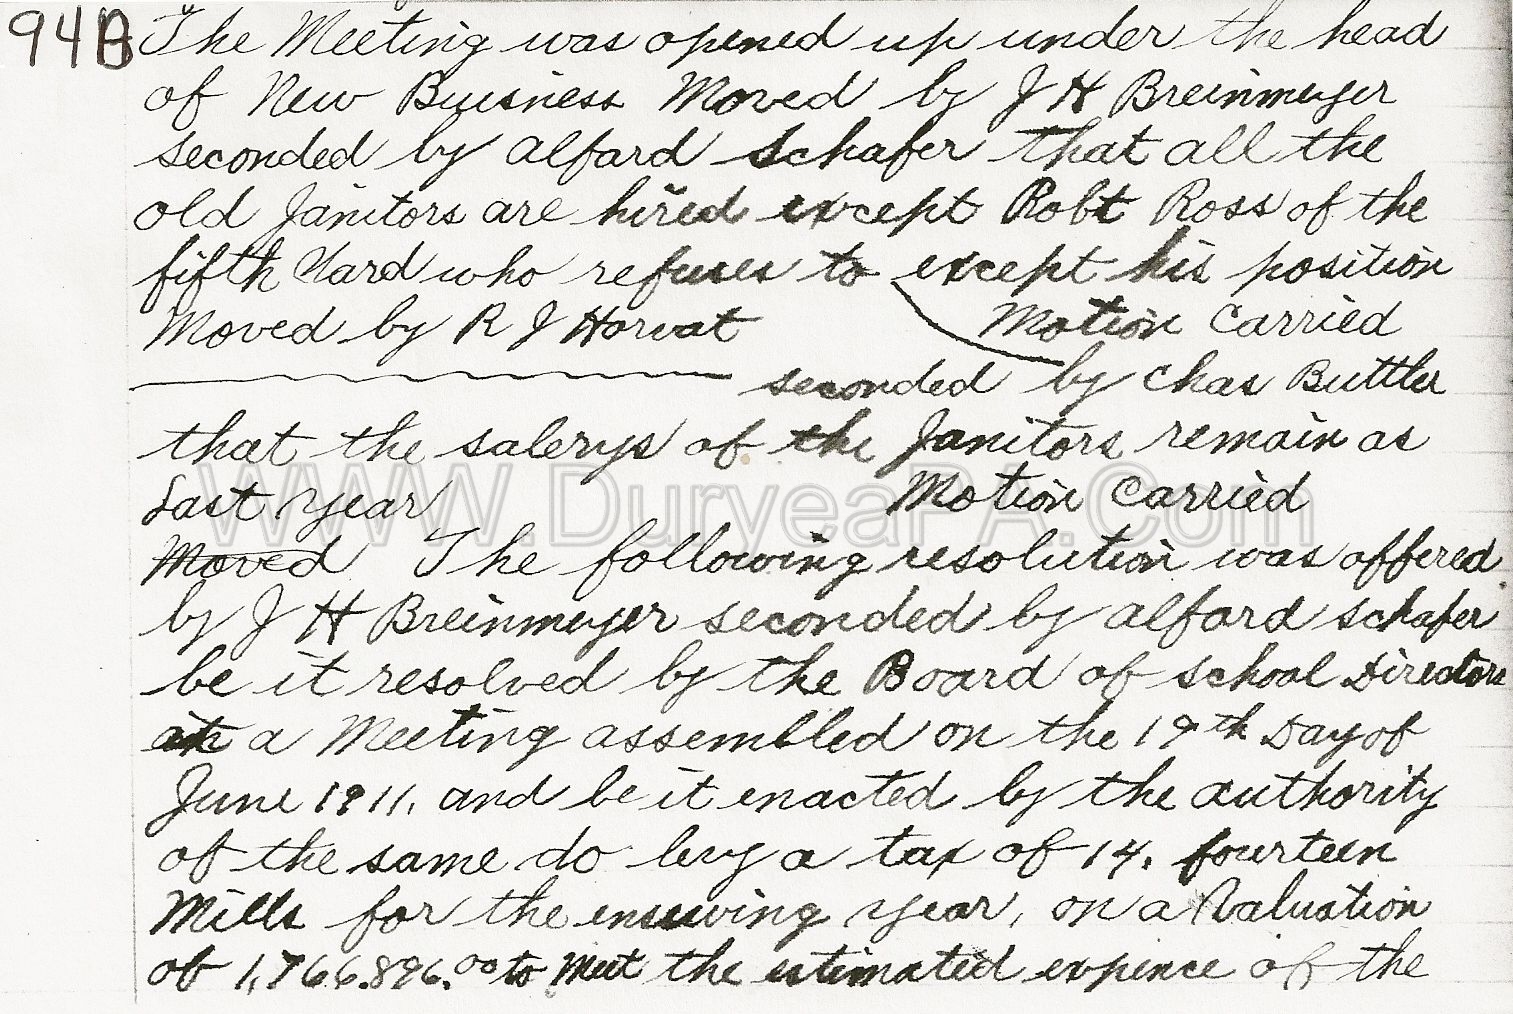 94B The Meeting was opened up under the head
of New Buisness Moved by J H Breinmeyer
seconded by Alfard Schafer that all the
old Janitors are hired except Robt Ross of the
fifth Ward who refuses to except his position
Motion Carried
Moved by R J Horvat
seconded by Chas Buttler
that the salerys of the Janitors remain as
Last year Motion Carried
Moved The following resolution was offered
by J H Breinmeyer seconded by Alfard Schafer
be it resolved by the Board of School Directors
in a Meeting assembled on the 19th Day of
June 1911. and be it enacted by the authority
of the same do levy a tax of 14. fourteen
Mills for the ensuwing year, on a Valuation
of 1,766.896.00 to Meet the estimated expence of the
WWW.DuryeaPA.Com